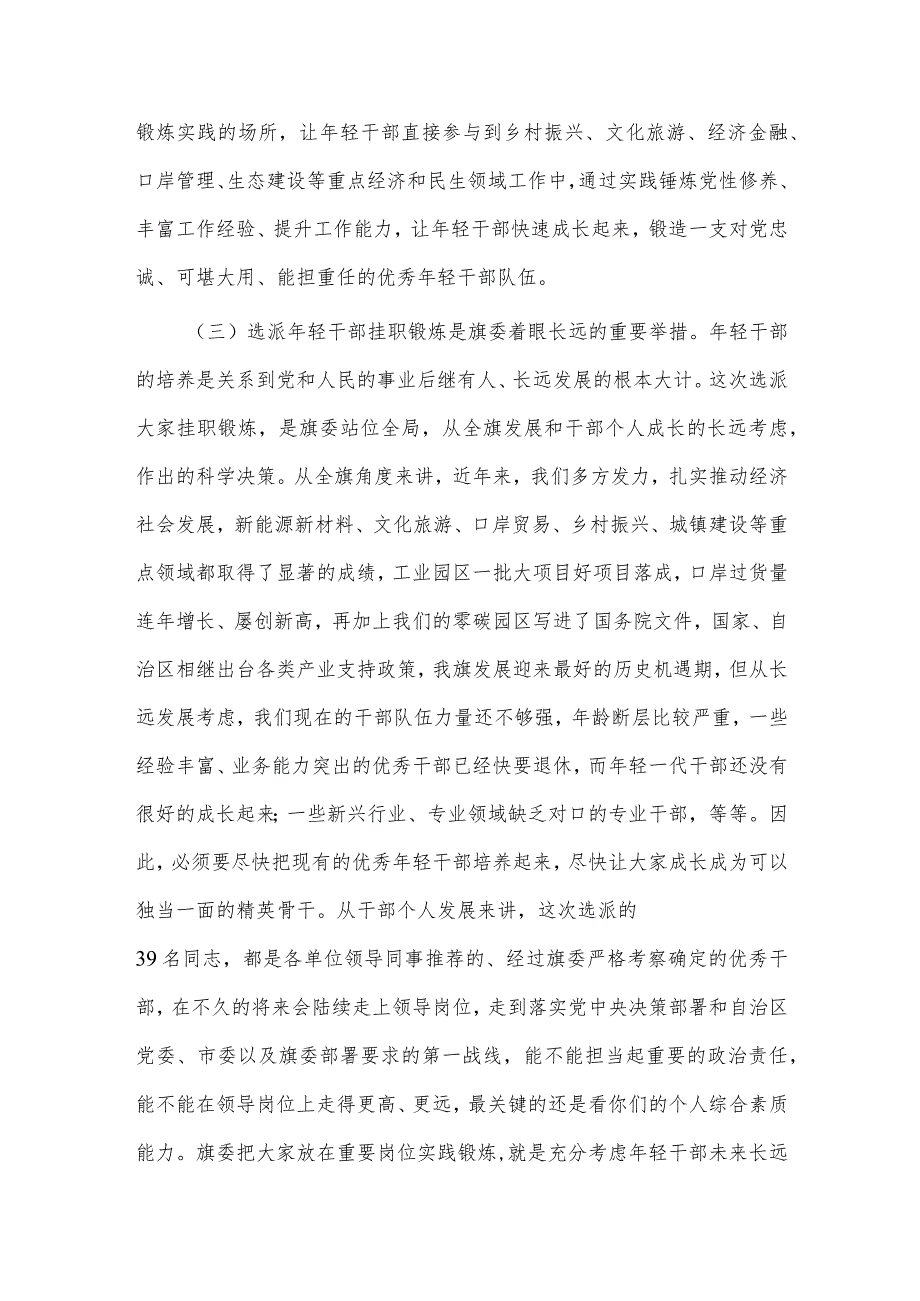 锻炼实践的场所，让年轻干部直接参与到乡村振兴、文化旅游、经济金融、
口岸管理、生态建设等重点经济和民生领域工作中，通过实践锤炼党性修养、
丰富工作经验、提升工作能力，让年轻干部快速成长起来，锻造一支对党忠
诚、可堪大用、能担重任的优秀年轻干部队伍。
（三）选派年轻干部挂职锻炼是旗委着眼长远的重要举措。年轻干部
的培养是关系到党和人民的事业后继有人、长远发展的根本大计。这次选派
大家挂职锻炼，是旗委站位全局，从全旗发展和干部个人成长的长远考虑，
作出的科学决策。从全旗角度来讲，近年来，我们多方发力，扎实推动经济
社会发展，新能源新材料、文化旅游、口岸贸易、乡村振兴、城镇建设等重
点领域都取得了显著的成绩，工业园区一批大项目好项目落成，口岸过货量
连年增长、屡创新高，再加上我们的零碳园区写进了国务院文件，国家、自
治区相继出台各类产业支持政策，我旗发展迎来最好的历史机遇期，但从长
远发展考虑，我们现在的干部队伍力量还不够强，年龄断层比较严重，一些
经验丰富、业务能力突出的优秀干部已经快要退休，而年轻一代干部还没有
很好的成长起来；一些新兴行业、专业领域缺乏对口的专业干部，等等。因
此，必须要尽快把现有的优秀年轻干部培养起来，尽快让大家成长成为可以
独当一面的精英骨干。从干部个人发展来讲，这次选派的
39 名同志，都是各单位领导同事推荐的、经过旗委严格考察确定的优秀干
部，在不久的将来会陆续走上领导岗位，走到落实党中央决策部署和自治区
党委、市委以及旗委部署要求的第一战线，能不能担当起重要的政治责任，
能不能在领导岗位上走得更高、更远，最关键的还是看你们的个人综合素质
能力。旗委把大家放在重要岗位实践锻炼，就是充分考虑年轻干部未来长远